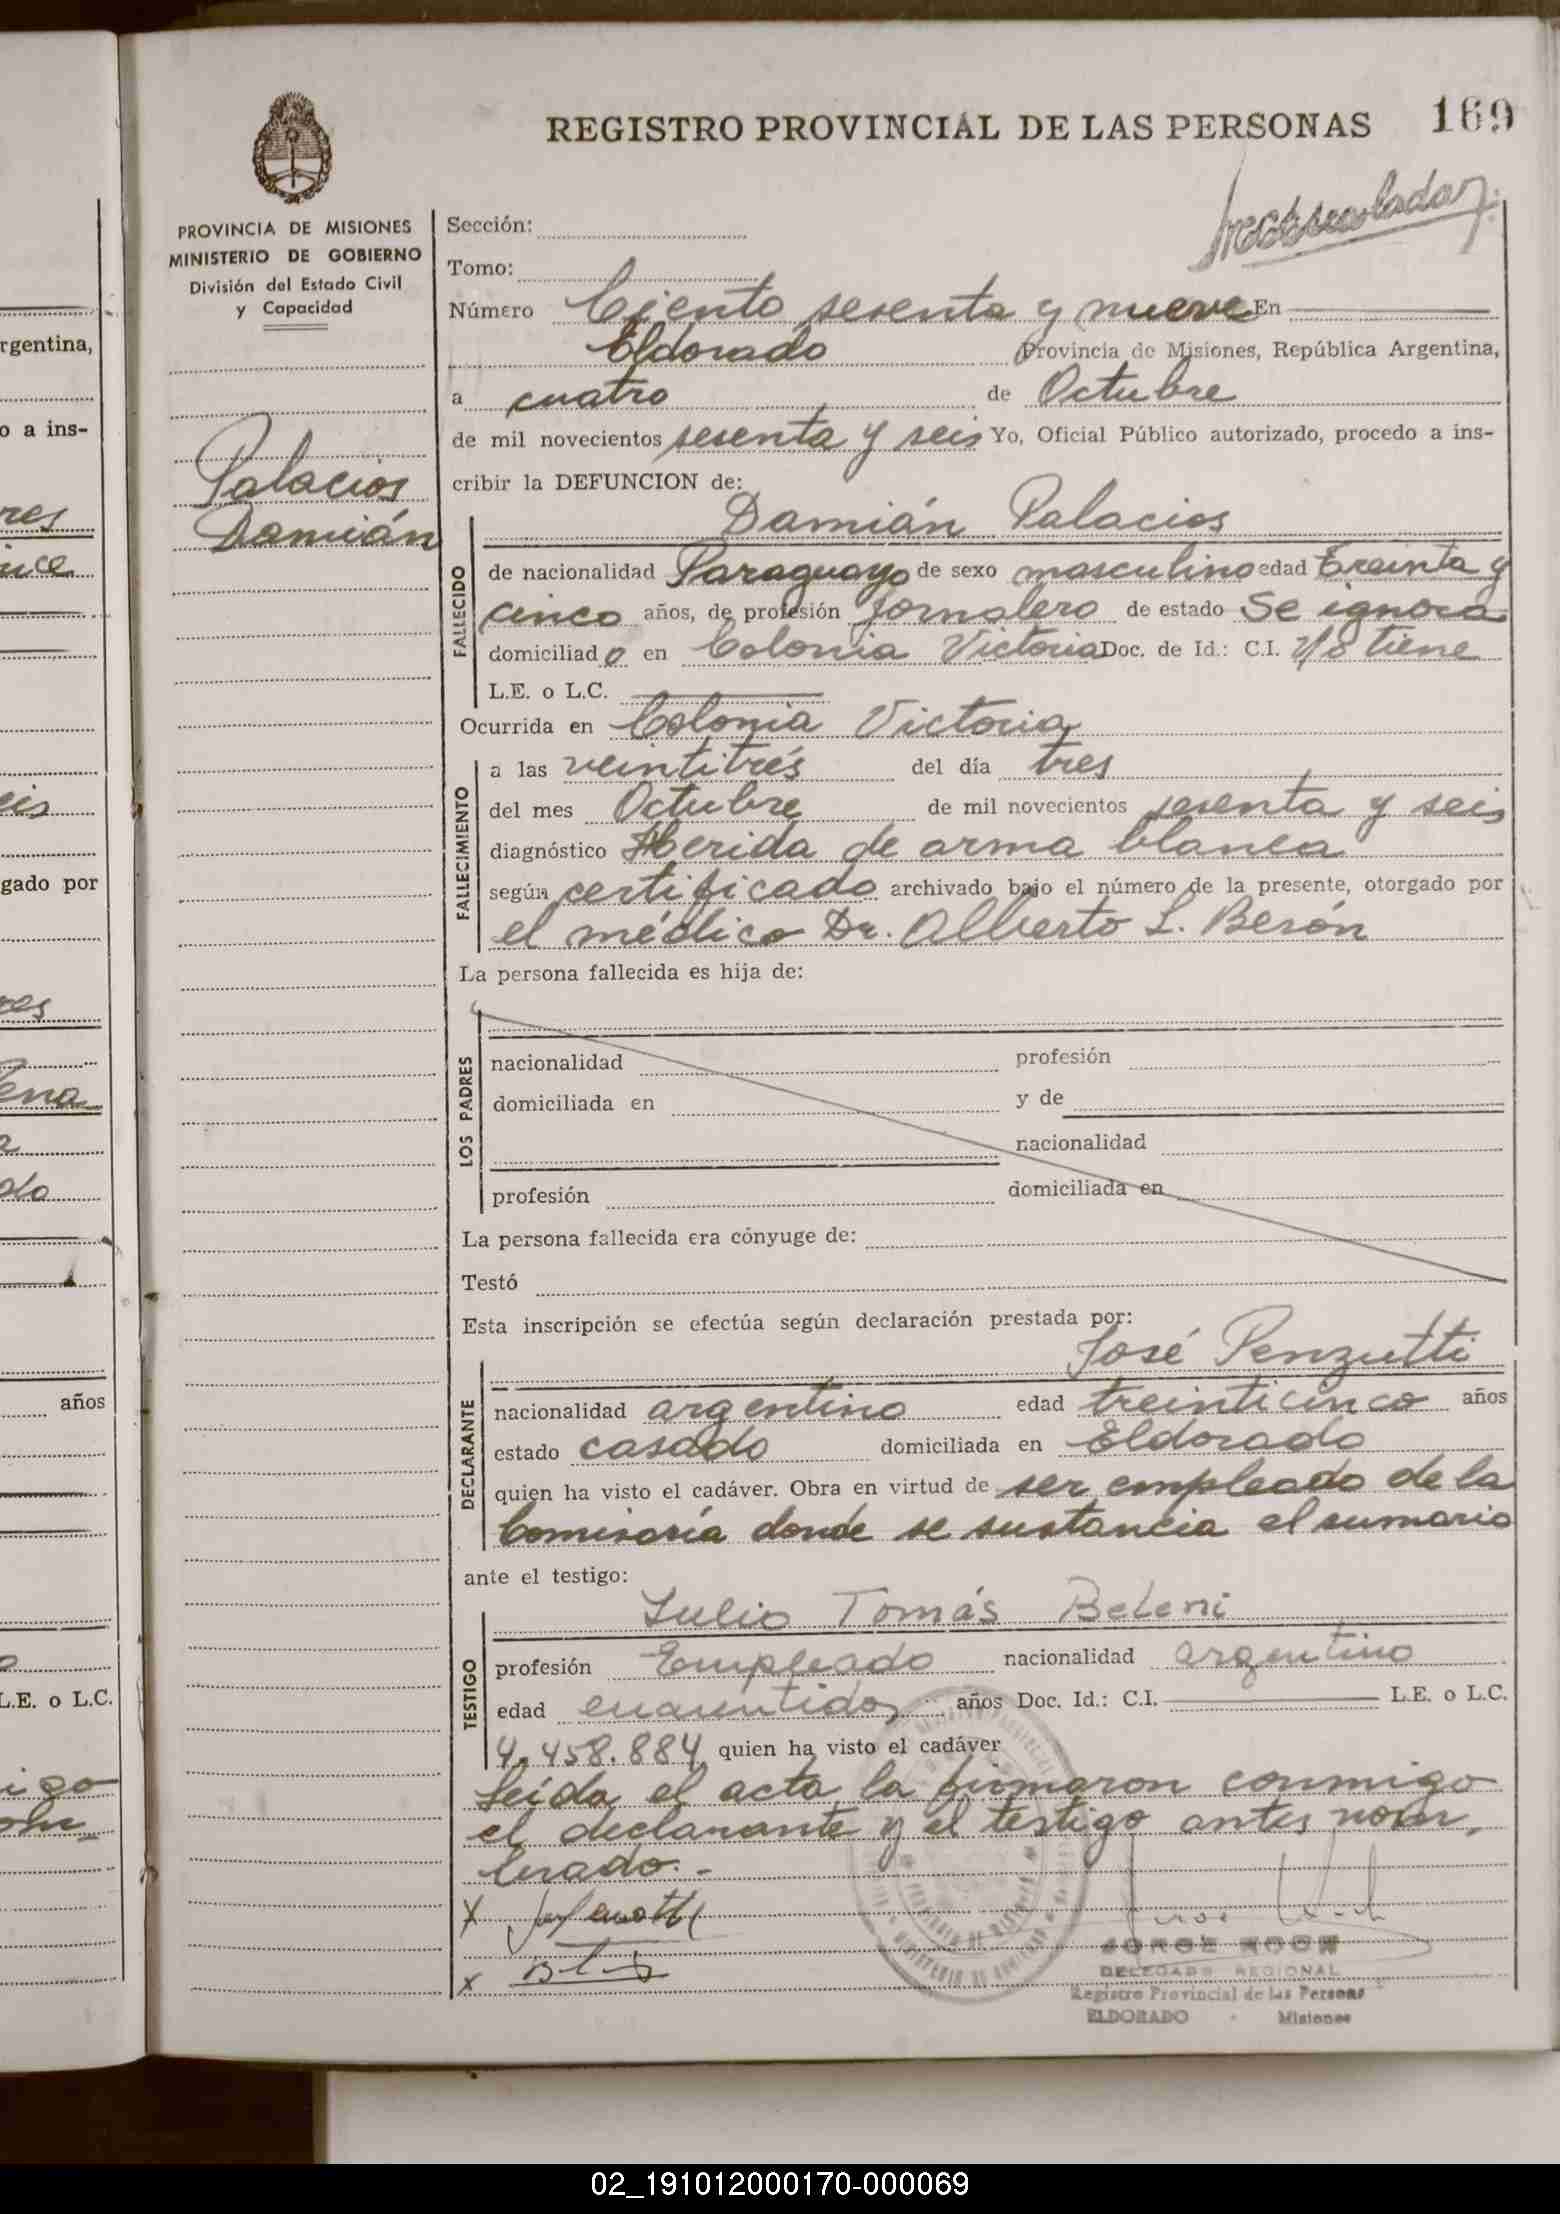 REGISTRO PROVINCIAL DE LAS PERSONAS 169
PROVINCIA DE MISIONES
MINISTERIO DE GOBIERNO
División del Estado Civil
y Capacidad
Palacios
Damián
Sección:
Tomo:
Número Ciento sesenta y nueve En
Eldorado Provincia de Misiones, República Argentina,
a cuatro de Octubre
de mil novecientos sesenta y seis Yo, Oficial Público autorizado, procedo a ins-
cribir la DEFUNCION de:
Damián Palacios
FALLECIDO
de nacionalidad Paraguayo de sexo masculino edad Treinta y
cinco años, de profesión jornalero de estado Se ignora
domiciliado en Colonia Victoria Doc. de Id.: C.I. No tiene
L.E. o L.C.
Ocurrida en Colonia Victoria
FALLECIMIENTO
a las veintitrés del día tres
del mes Octubre de mil novecientos sesenta y seis
diagnóstico Herida de arma blanca
según certificado archivado bajo el número de la presente, otorgado por
el médico Dr. Alberto L. Berón
La persona fallecida es hija de:
LOS PADRES
nacionalidad profesión
domiciliada en y de
nacionalidad
profesión domiciliada en
La persona fallecida era cónyuge de:
Testó
Esta inscripción se efectúa según declaración prestada por:
José Penzutti
DECLARANTE
nacionalidad argentino edad treinticinco años
estado casado domiciliada en Eldorado
quien ha visto el cadáver. Obra en virtud de ser empleado de la
Comisaría donde se sustancia el sumario
ante el testigo:
Julio Tomás Beleni
TESTIGO
profesión Empleado nacionalidad argentino
edad cuarentidos años Doc. Id.: C.I. L.E. o L.C.
4.458.884 quien ha visto el cadáver
Leída el acta, la firmaron conmigo
el declarante y el testigo antes nom-
brado.-
x
x
JORGE KOCH
DELEGADO REGIONAL
Registro Provincial de las Personas
ELDORADO - Misiones
rgentina,
o a ins-
gado por
años
L.E. o L.C.
02_191012000170-000069